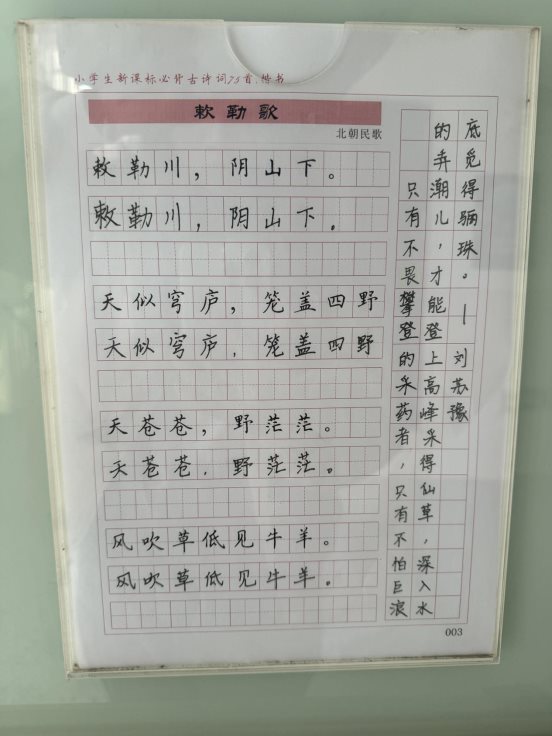 小学生新课标必背古诗词75首·楷书
敕勒歌
北朝民歌
敕勒川，阴山下。
敕勒川，阴山下。
天似穹庐，笼盖四野
天似穹庐，笼盖四野
天苍苍，野茫茫。
天苍苍，野茫茫。
风吹草低见牛羊。
风吹草低见牛羊。
只有不畏攀登的采药者，只有不怕巨浪
的弄潮儿，才能登上高峰采得仙草，深入水
底觅得骊珠。—刘苏豫
003